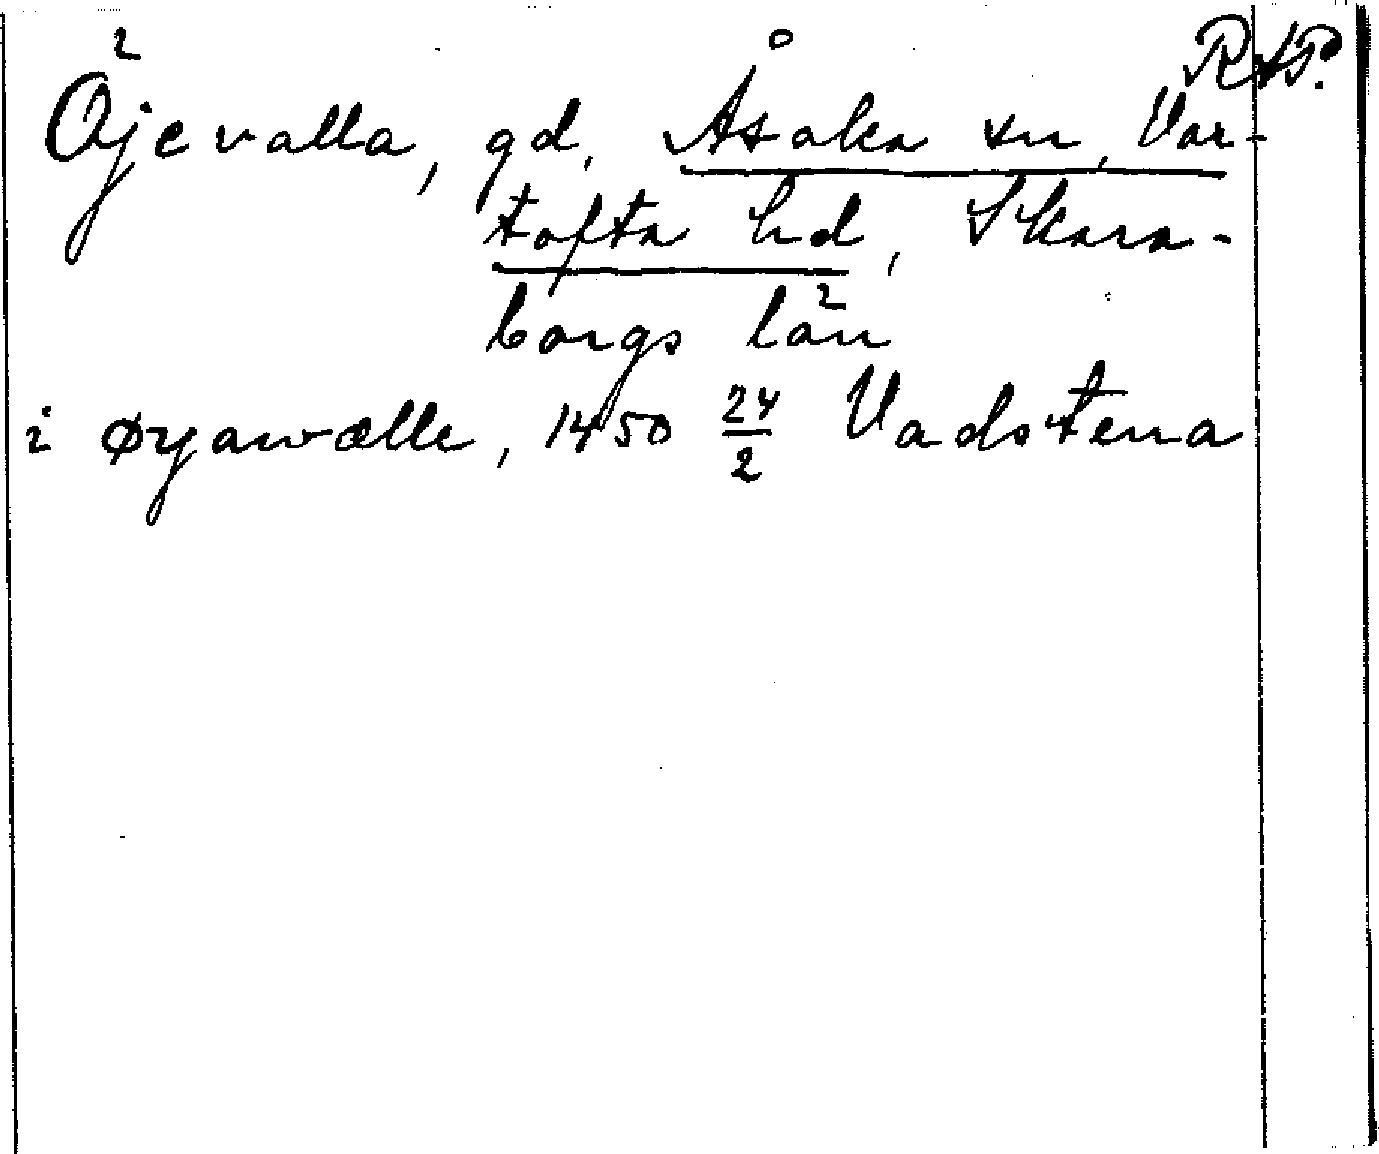 RAP.
Öjevalla, gd, Åsaka sn, Var-
tofta hd, Skara-
borgs län
i øyawælle, 1450 24/2 Vadstena